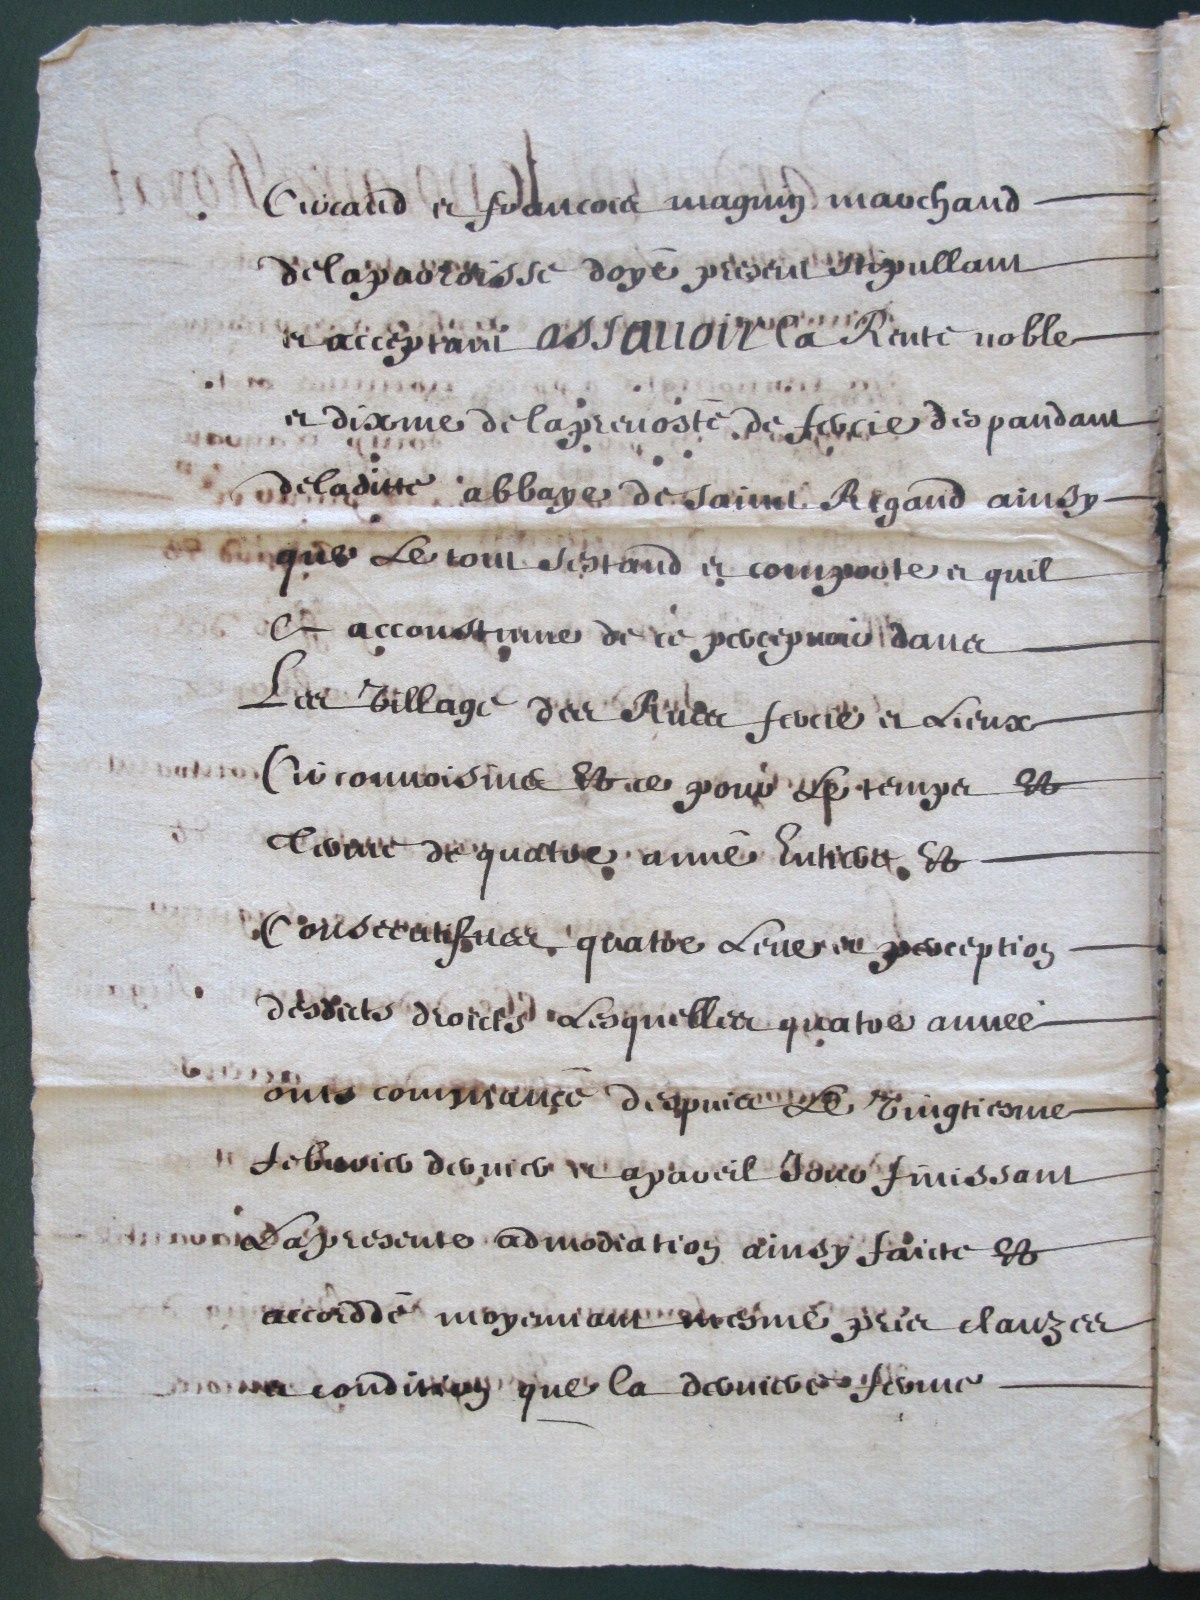 Giraud et francois magnin marchand
de la parroisse doyé present stipullant
et acceptant assauoir la Rente noble
et dixme de la preuosté de fercie despandant
de laditte abbaye de saint Rigaud ainsy
que Le tout sestand et comporte et quil
est accoustumé de ce percepuoir dans
Les Village des Rues fercie et Lieux
Circonuoisins et ce pour Le temps et
terme de quatre année Entiere et
Consecutifues quatre Leuee et perception
desdicts droicts Lesquelles quatre année
onts commancé despuis Le Vingtiesme
febvrier dernier et a pareil Jour finissant
La presente admodiation ainsy faicte et
accorddé moyennant mesme pris clauzes
et condition que la derniere ferme